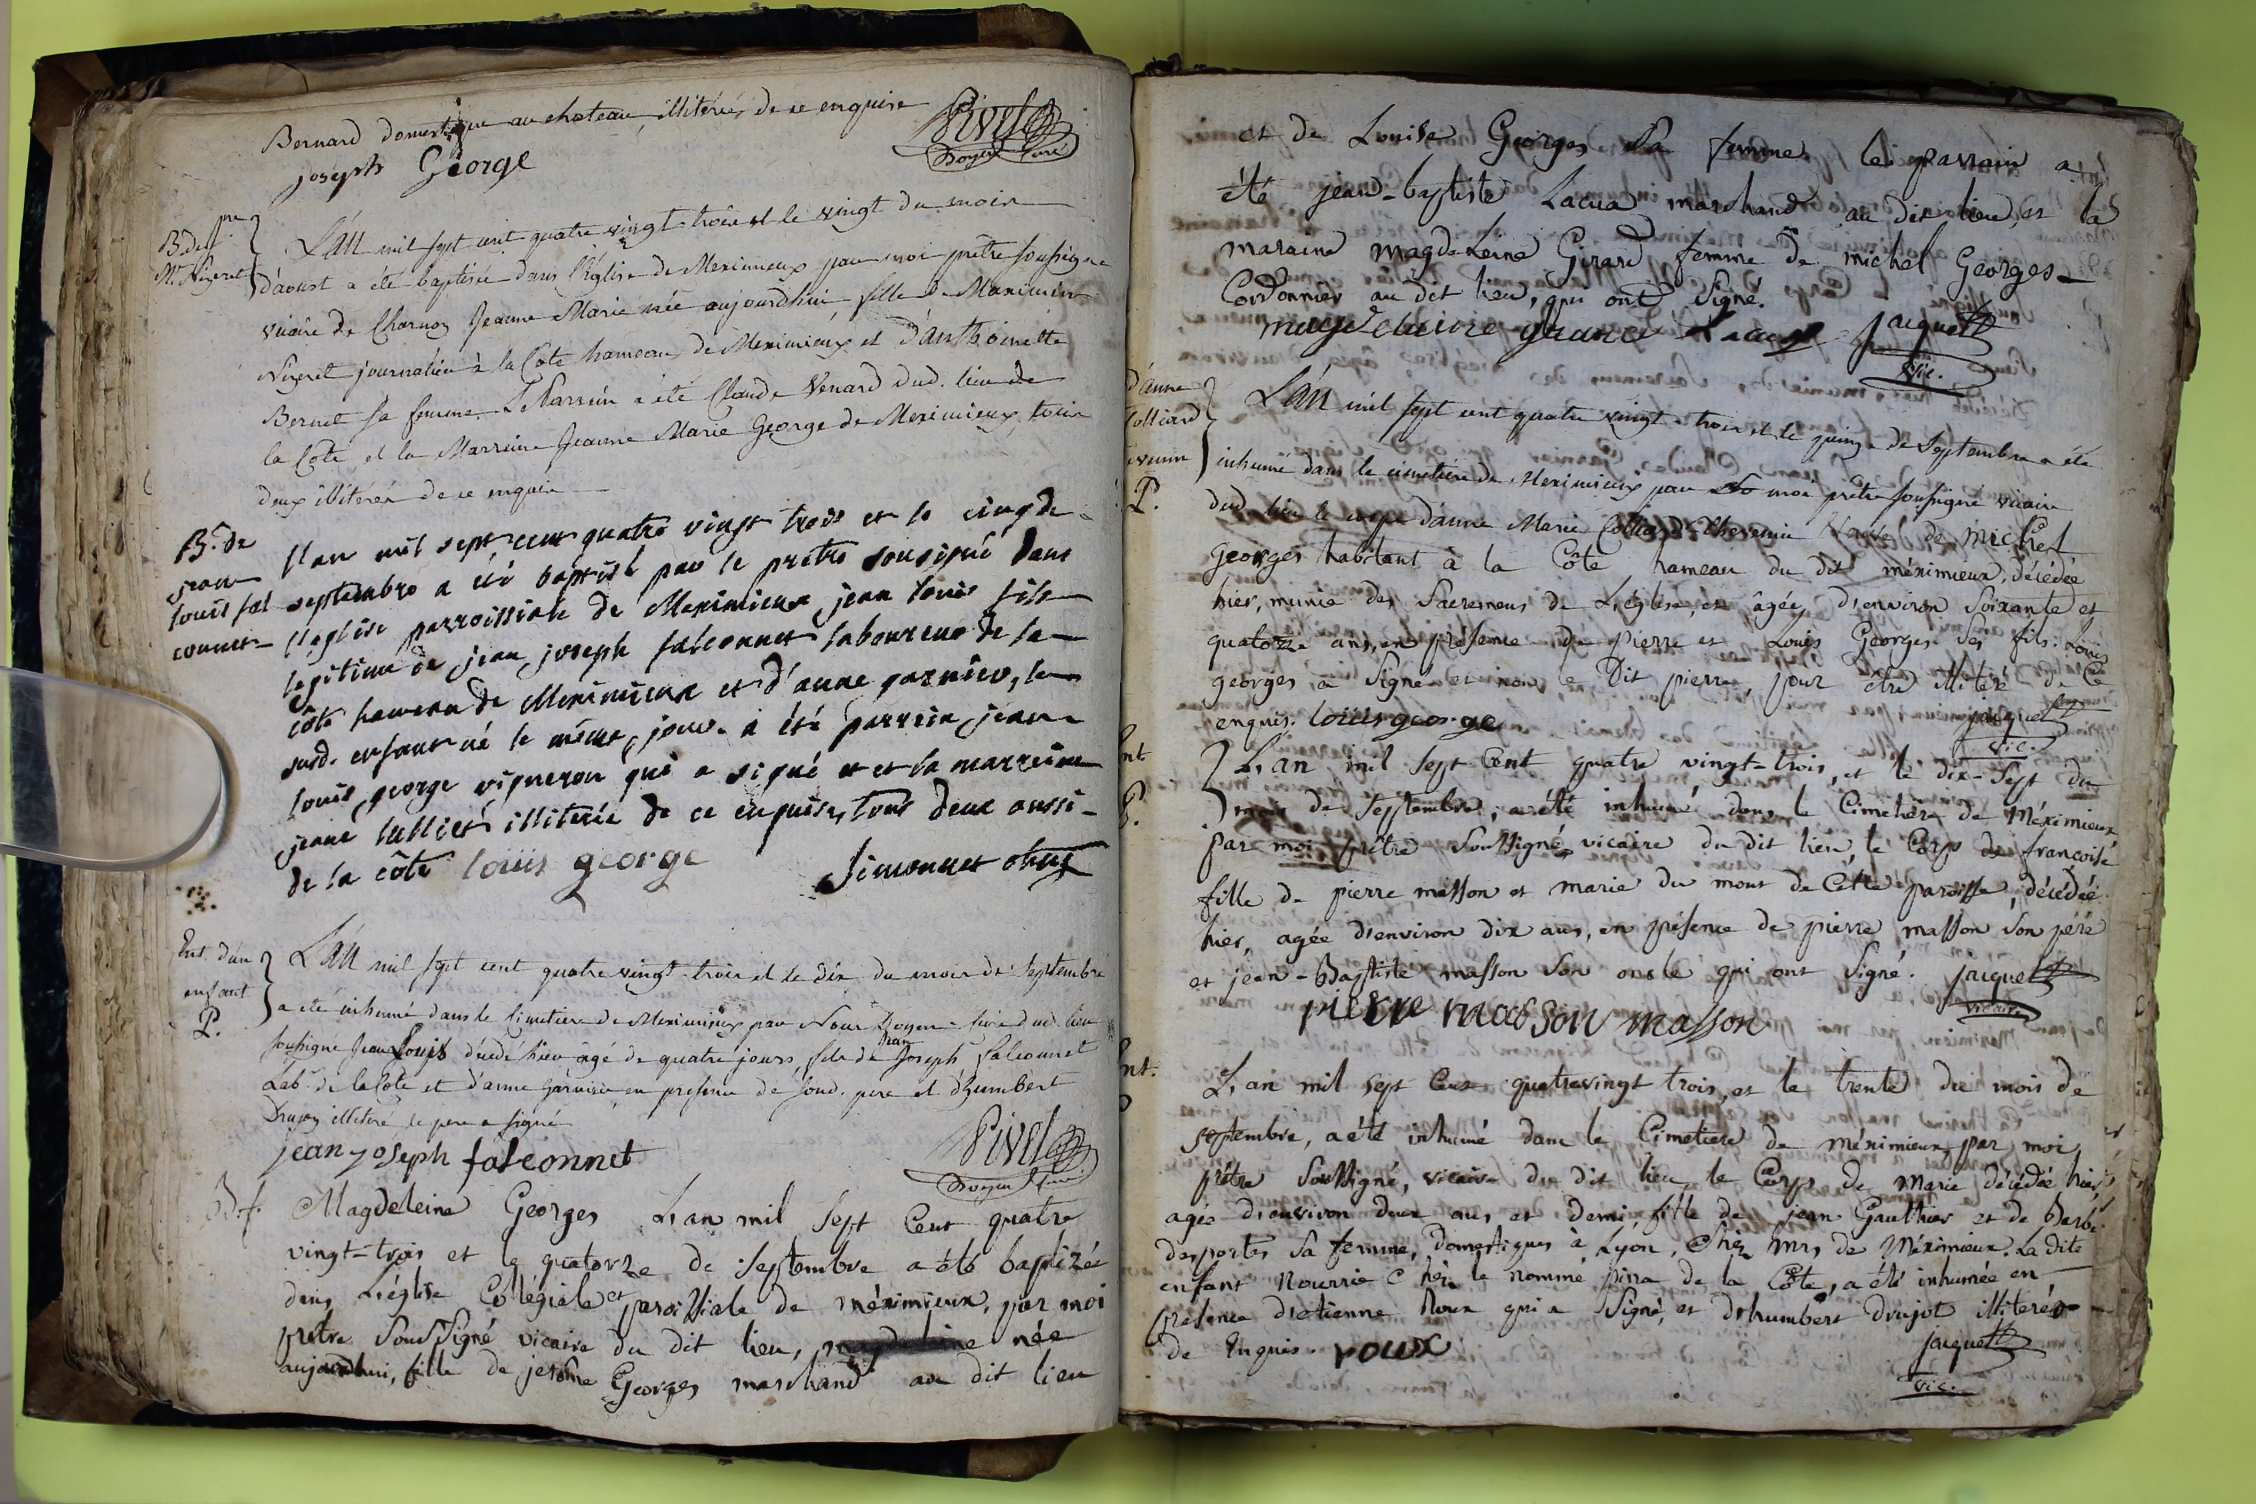 Bernard domestique au chateau illiterés de ce enquise
joseph George
Pivet
Doyen Curé
B. de jne
Me Nigeret
L'an mil sept cent quatre vingt trois et le vingt du mois
d'aoust a été baptisée dans l'église de Meximieux par moi prêtre soussigné
vicaire de Charnoz Jeanne Marie née aujourdhui fille de Maximin
Nigeret journalier à la Côte hameau de Meximieux et d'Anthoinette
Bernet sa femme. Le Parrein a été Claude Venard dud. lieu de
la Côte et la Marreine Jeanne Marie George de Meximieux tous
deux illiterés de ce enquis
B. de
jean
louis fal
connet
l'an mil sept cent quatre vingt trois et le cinq de
septembre a été baptisé par le prêtre sousigné dans
l'eglise parroissiale de Meximieux jean louis fils
legitime de jean joseph falconnet laboureur de la
côte hameau de Meximieux et d'anne garnier, le
susd. enfant né le même jour. a été parrein jean
louis george vigneron qui a signé et et la marreine
jeane illiterée de ce enquise, tous deux aussi
de la côte louis george
Simonnet
Ent. d'un
enfant
P.
L'an mil sept cent quatre vingt trois et le dix du mois de Septembre
a été inhumé dans le Cimetiere de Meximieux par Nous Doyen Curé dud. lieu
soussigné Jean Louis décédé hier agé de quatre jours, fils de Jean Joseph Falconnet
Lab. de la Côte et d'anne Garnier en presence de sond. pere et d'humbert
Drujon illiteré le pere a signé
jean joseph falconnet
Pivet
Doyen Curé
B. de Magdeleine Georges L'an mil sept Cent quatre
vingt-trois et le quatorze de septembre a été baptizée
dans L'église Collégiale et paroissiale de méximieux, par moi
prêtre Soussigné vicaire du dit lieu, née
aujourdhui, fille de jerôme Georges marchand au dit lieu
et de Louise Georges Sa femme le parrain a
été jean-baptiste Lacua marchand au dit lieu, et la
maraine magdeleine Girard femme de michel Georges
Cordonnier au dit lieu, qui ont Signé.
Lacua jacquet
vic.
d'anne
Colliard
P.
L'an mil sept cent quatre vingt trois et le quinze de Septembre a été
inhumé dans le cimetiere de Meximieux par moi prêtre soussigné vicaire
dud. lieu le corps d'anne Marie Colliard Thevenin Veuve de michel
Georges habitant à la Côte hameau du dit méximieux, décédée
hier, munie des Sacremens de L'église, et âgée d'environ Soixante et
quatorze ans, en présence de pierre et Louis Georges Ses fils. Louis
georges a Signé et non le Dit pierre, pour être illitéré de Ce
enquis. louis george jacquet
vic.
Ent.
P.
L'an mil Sept Cent quatre vingt-trois, et le dix-Sept du
mois de Septembre, a été inhumé dans le Cimetiere de Méximieux
par moi prêtre Soussigné, vicaire du dit lieu, le Corps de françoise
fille de pierre masson et marie du mont de Cette paroisse, décédée
hier, agée d'environ dix ans, en présence de pierre masson Son père
et jean-Baptiste masson Son oncle qui ont Signé. jacquet
vicaire
pierre masson masson
Ent.
L'an mil sept Cent quatrevingt trois, et le trente du mois de
septembre, a été inhumé dans le Cimetiere de méximieux, par moi,
prêtre Soussigné, vicaire du dit lieu, le Corps de marie décédée hier,
agée d'environ deux ans et demi, fille de jean Gauthier et de Barbe
desportes Sa femme, domestiques à Lyon, Chez Mrs de Méximieux. La dite
enfant Nourrie Chez le nommé pirra de la Côte, a été inhumée en
présence d'etienne Roux qui a Signé, et d'humbert drujot illiteré
de Enquis. roux
jacquet
vic.